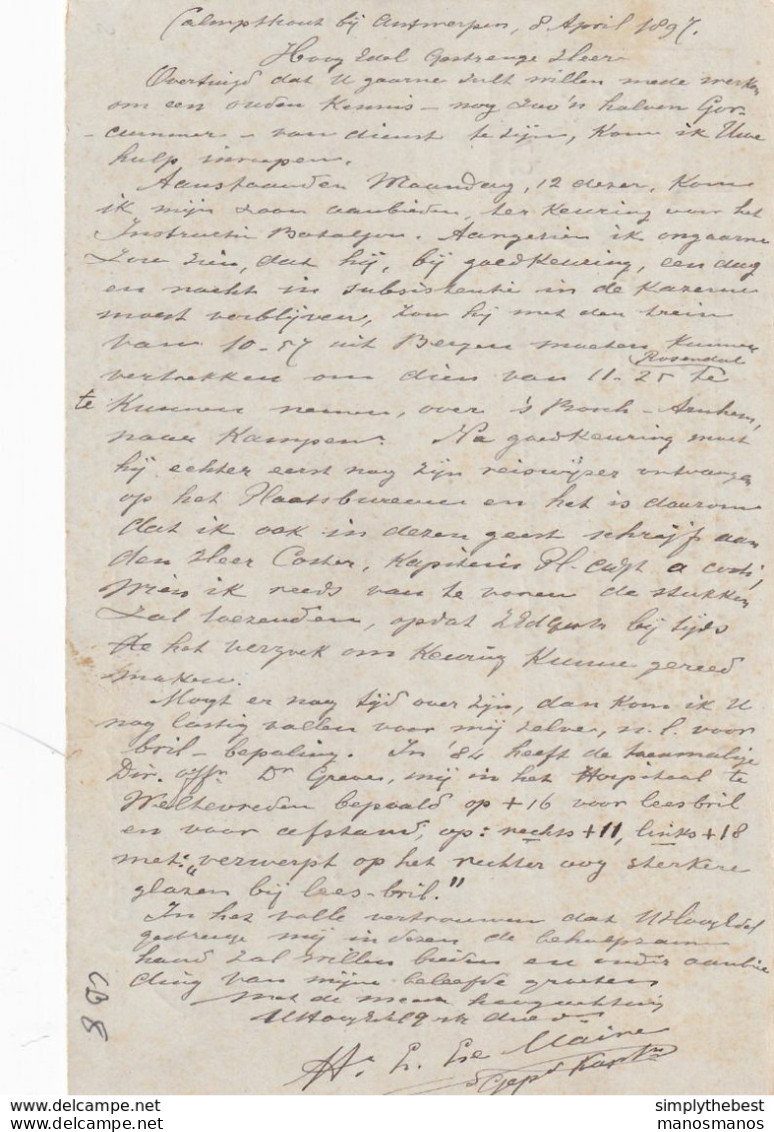 Calmpthout bij Antwerpen, 8 April 1897.
Hoog Edel Gestrenge Heer
Overtuigd dat U gaarne zult willen mede werken
om een ouden Kennis – nog zoo'n halven Gor-
-cummer – van dienst te zijn, Kom ik Uwe
hulp inroepen.
Aanstaanden Maandag, 12 dezer, Kom
ik mijn zoon aanbieden, ter Keuring voor het
Instructie Bataljon. Aangezien ik ongaarne
zou zien, dat hij, bij goedkeuring, een dag
en nacht in subsistentie in de Kazerne
moest verblijven, zou hij met den trein
van 10-57 uit Bergen moeten Kunnen
Rosendal
vertrekken om dien van 11-25 te
te Kunnen nemen, over 's Bosch – Arnhem,
naar Kampen. Na goedkeuring moet
hij echter eerst nog zijn reiswijzer ontvangen
op het Plaatsbureau en het is daarom
dat ik ook in dezen geest schrijf aan
den Heer Coster, Kapitein Pl. a costi,
wien ik reeds van te voren de stukken
zal toezenden, opdat ZEdGestr bij tijds
het verzoek om Keuring Kunne gereed
maken.
Mogt er nog tijd over zijn, dan Kom ik U
nog lastig vallen voor mij zelve, n.l. voor
bril-bepaling. In '84 heeft de toenmalige
Dir. offr. Dr Greve, mij in het Hospitaal te
Weltevreden bepaald op +16 voor leesbril
en voor afstand, op: rechts +11, links +18
met: "verwerpt op het rechter oog sterkere
glazen bij lees-bril."
In het volle vertrouwen dat UHoogEdel
gestrenge mij in dezen de behulpzame
hand zal willen bieden en onder aanbie
ding van mijne beleefde groeten
Met de meeste hoogachting
UHoogEdGestr
H. L. Le Maire
Gepd Kaptn
CB 8
simplythebest
manosmanos